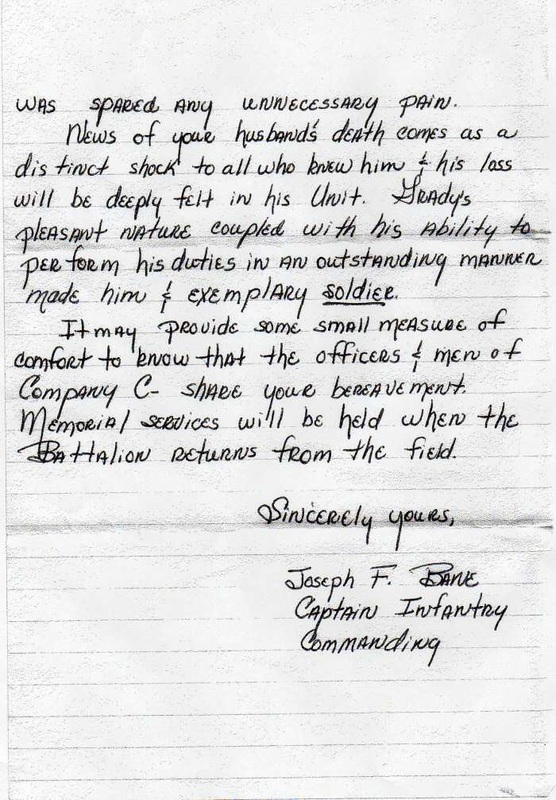 was spared any unnecessary pain.
News of your husband's death comes as a
distinct shock to all who knew him & his loss
will be deeply felt in his Unit. Grady's
pleasant nature coupled with his ability to
perform his duties in an outstanding manner
made him & exemplary soldier.
It may provide some small measure of
comfort to know that the officers & men of
Company C- share your bereavement.
Memorial services will be held when the
Battalion returns from the field.
Sincerely yours,
Joseph F. Bane
Captain Infantry
Commanding